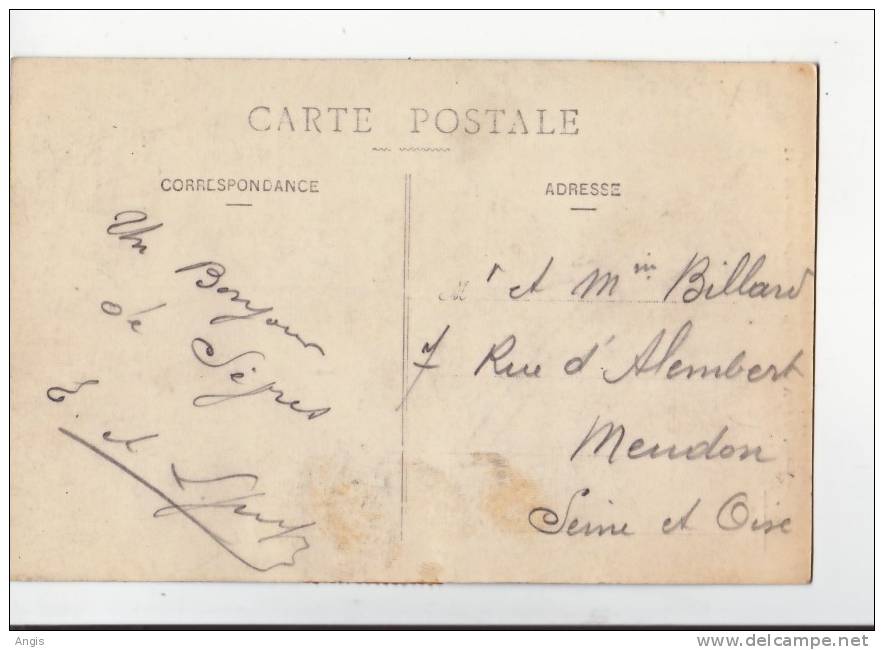 CARTE POSTALE
CORRESPONDANCE
Un Bonjour
de Sèpres
E. et
ADRESSE
Mr et Mme Billard
7 Rue d'Alembert
Meudon
Seine et Oise
Angis
www.delcampe.net